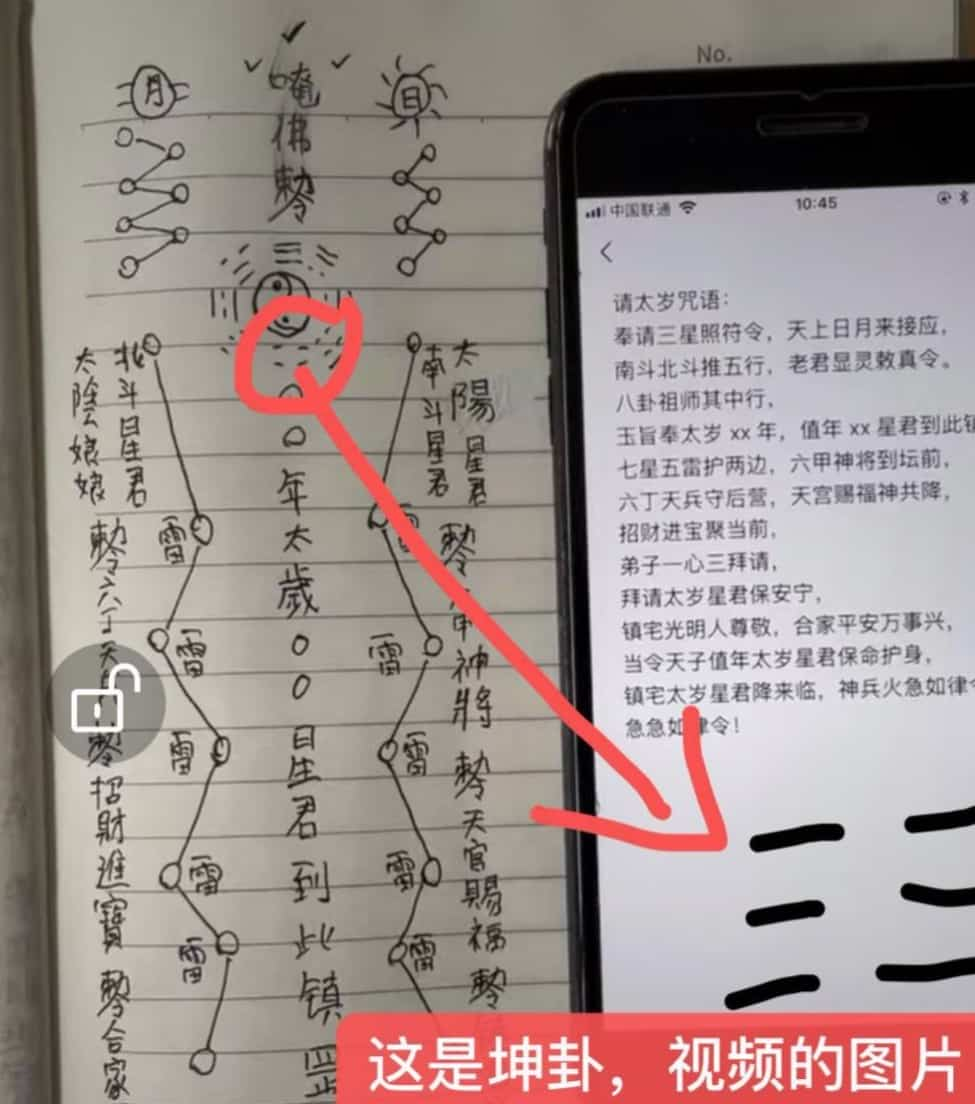 No.
月
日
唵佛勅
○○年太歲○○星君到此镇
北斗星君
太陰娘娘
勅六丁天
勅招財進寶
勅合家
南斗星君
太陽星君
勅
甲神將
勅天官賜福
勅
雷
雷
雷
雷
雷
雷
雷
雷
雷
雷
中国联通
10:45
请太岁咒语：
奉请三星照符令，天上日月来接应，
南斗北斗推五行，老君显灵敕真令。
八卦祖师其中行，
玉旨奉太岁 xx 年，值年 xx 星君到此镇
七星五雷护两边，六甲神将到坛前，
六丁天兵守后营，天宫赐福神共降，
招财进宝聚当前，
弟子一心三拜请，
拜请太岁星君保安宁，
镇宅光明人尊敬，合家平安万事兴，
当令天子值年太岁星君保命护身，
镇宅太岁星君降来临，神兵火急如律令
急急如律令！
这是坤卦，视频的图片